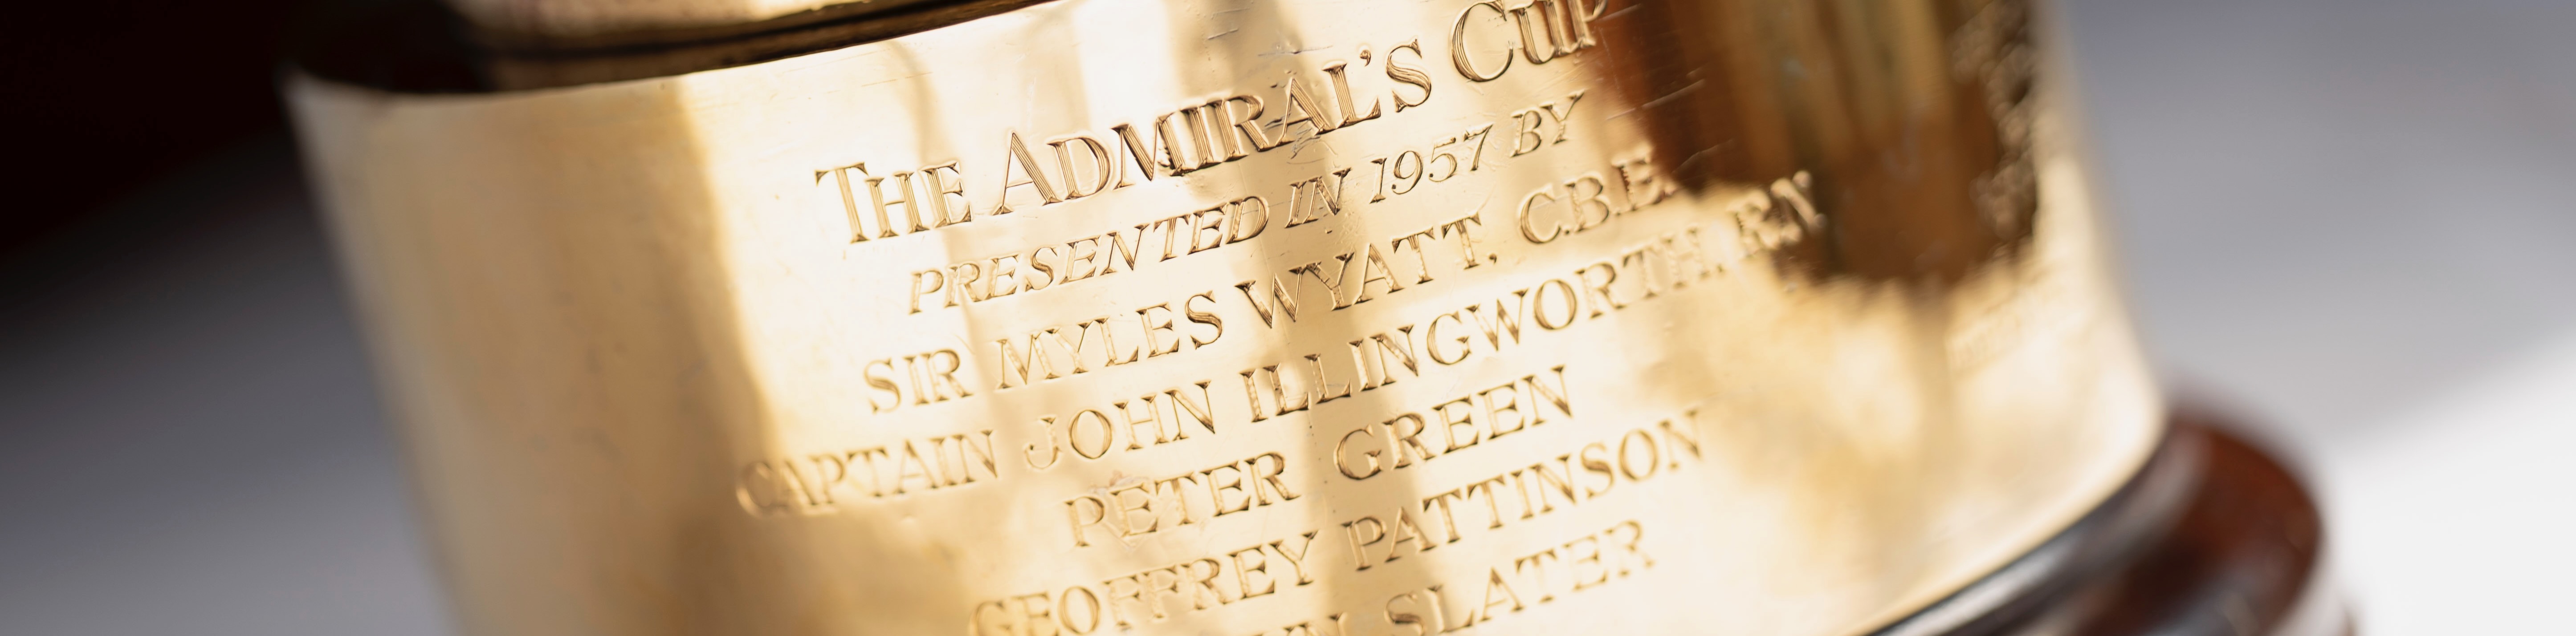 THE ADMIRAL'S CUP
PRESENTED IN 1957 BY
SIR MYLES WYATT, C.B.E.
CAPTAIN JOHN ILLINGWORTH, R.N
PETER GREEN
GEOFFREY PATTINSON
SLATER